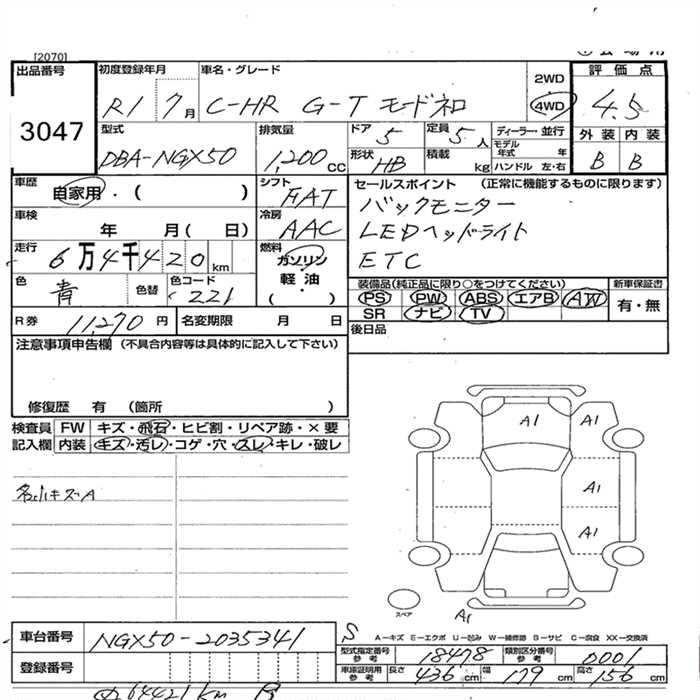 [2070]
出品番号 初度登録年月 車名・グレード 2WD 評価点
3047 R1 7月 C-HR G-T モードネロ 4WD 4.5
型式 排気量 ドア 定員 ディーラー・並行 外装 内装
DBA-NGX50 1,200CC 5 5人 モデル年式 年 B B
形状 HB 積載 kg ハンドル 左・右
車歴 自家用・( ) シフト FAT セールスポイント (正常に機能するものに限ります)
車検 年 月( 日) 冷房 AAC バックモニター
LEDヘッドライト
走行 6万4千420km 燃料 ガソリン ETC
色 青 色替 色コード 221 軽油 ( ・ )
装備品(純正品に限り○をつけてください) 新車保証書
PS PW ABS エアB AW 有・無
SR ナビ TV
R券 11,270円 名変期限 月 日 後日品
注意事項申告欄 (不具合内容等は具体的に記入して下さい)
修復歴 有 (箇所 )
検査員 FW キズ・飛石・ヒビ割・リペア跡・×要
記入欄 内装 キズ・汚レ・コゲ・穴・スレ・キレ・破レ
各小キズA
A1 A1
A1
A1
スペア A1
車台番号 NGX50-2035341 S A-キズ E-エクボ U-凹み W-補修跡 B-サビ C-腐食 XX-交換済
型式指定番号 参考 18478 類別区分番号 参考 0001
登録番号 車庫証明用 参考 長さ 436cm 幅 179cm 高さ 156cm
64421km